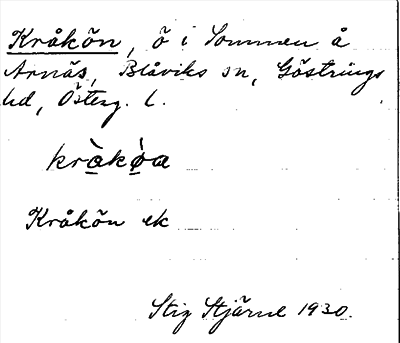 Kråkön, ö i Sommen å
Arnäs, Blåviks sn, Göstrings
hd, Österg. l.
kràkøa
Kråkön ek
Stig Stjärne 1930.